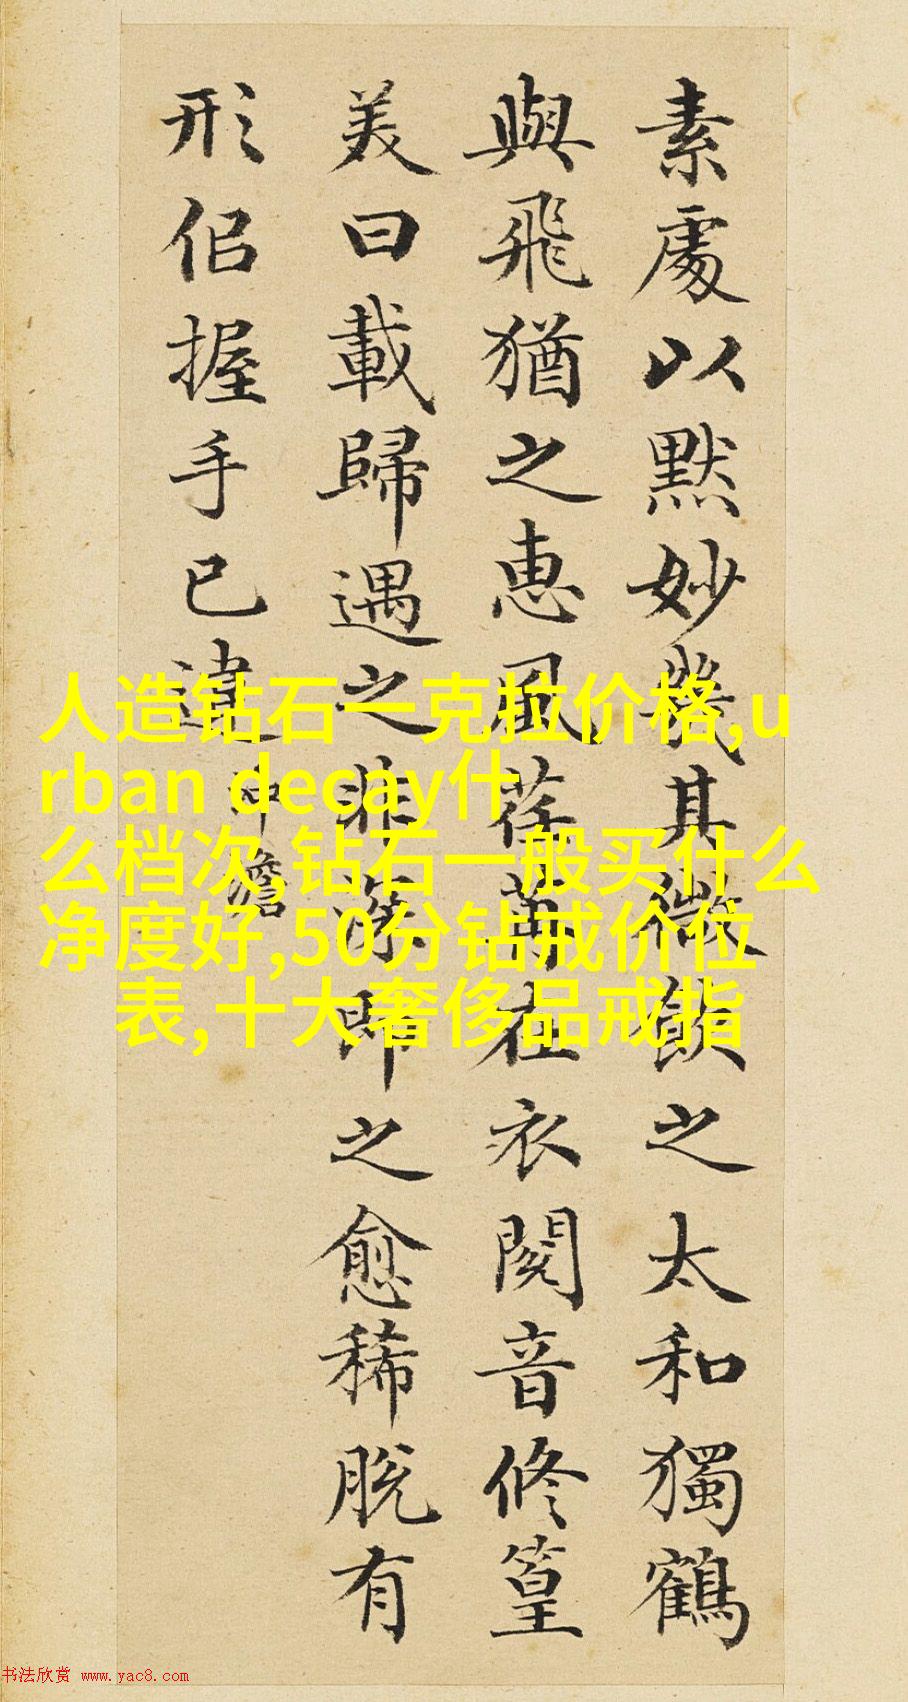 素處以默妙幾其微飲之太和獨鶴
與飛猶之惠風荏苒在衣閱音修篁
美曰載歸遇之非深即之愈稀脫有
形佀握手已違
沖澹
人造钻石一克拉价格,u
rban decay什
么档次,钻石一般买什么
净度好,50分钻戒价位
表,十大奢侈品戒指
书法欣赏 www.yac8.com